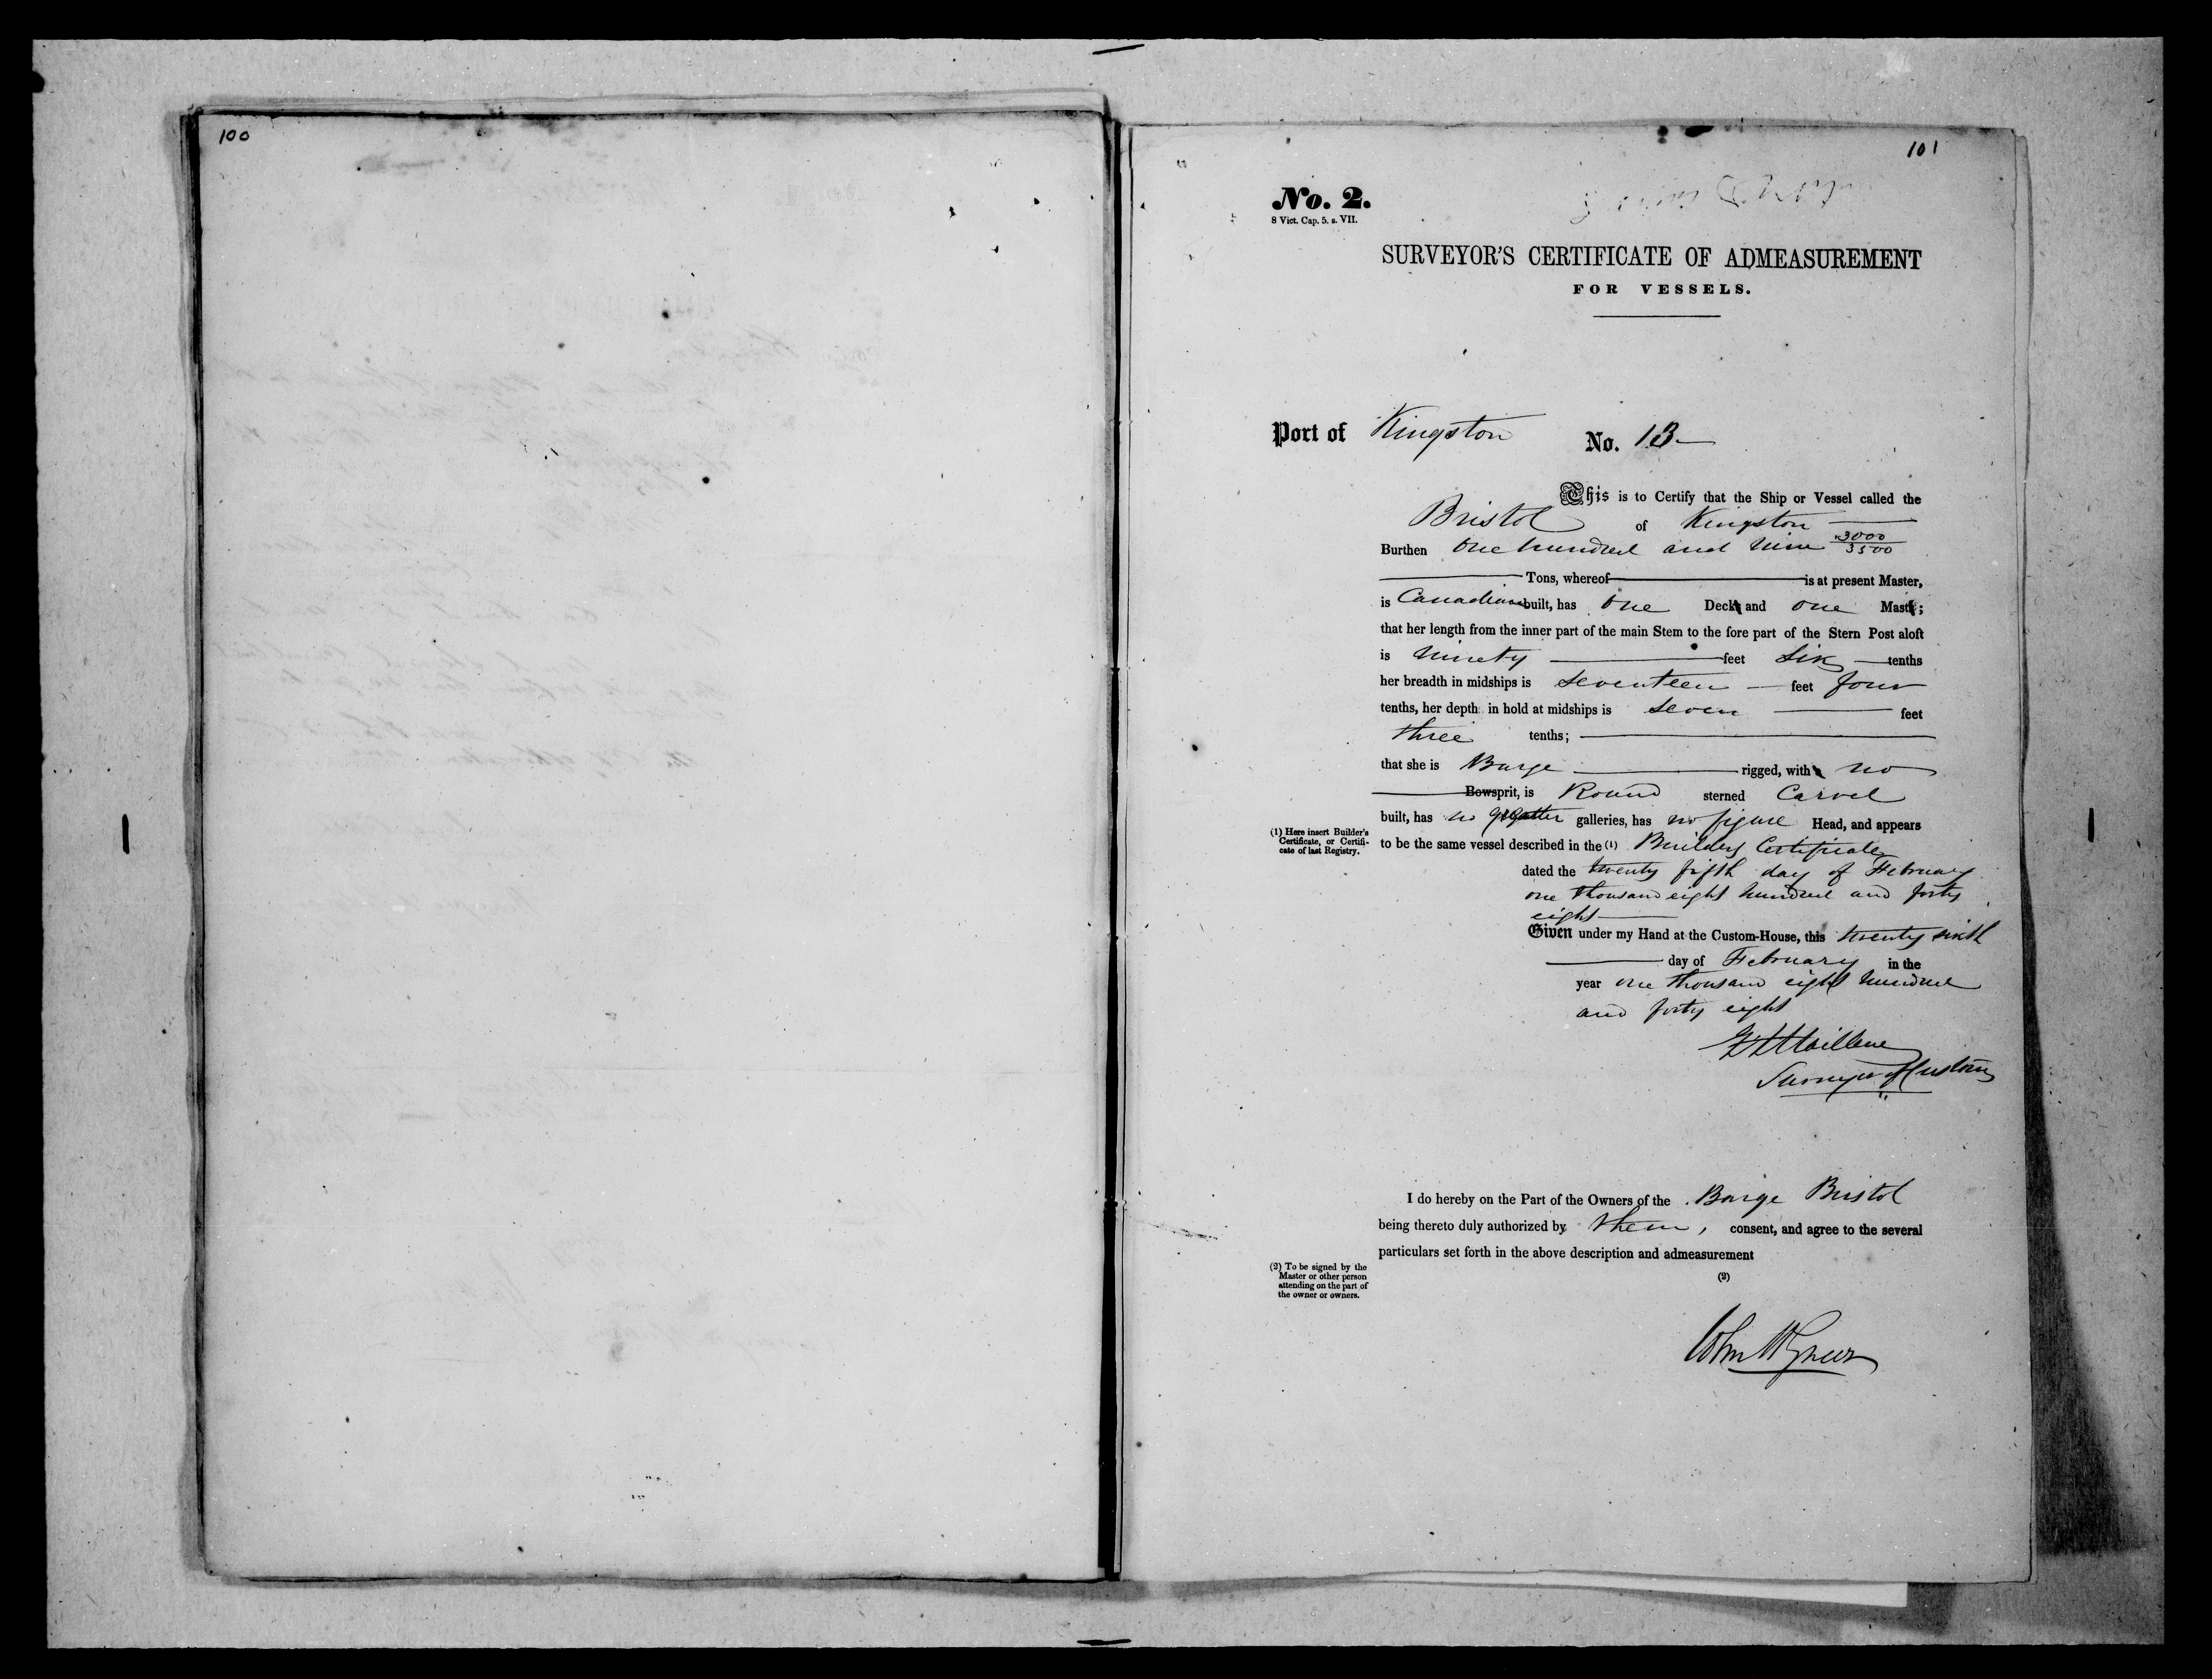 100
101
No. 2.
8 Vict. Cap. 5. s. VII.
SURVEYOR'S CERTIFICATE OF ADMEASUREMENT
FOR VESSELS.
Port of Kingston No. 13
This is to Certify that the Ship or Vessel called the
Bristol of Kingston
Burthen One hundred and Nine 3000/3500
Tons, whereof is at present Master,
is Canadian built, has One Deck and One Mast;
that her length from the inner part of the main Stem to the fore part of the Stern Post aloft
is Ninety feet Six tenths
her breadth in midships is Seventeen feet four
tenths, her depth in hold at midships is Seven feet
three tenths;
that she is Barge rigged, with no
Bowsprit, is Round sterned Carvel
built, has no galleries, has no figure Head, and appears
(1) Here insert Builder's
Certificate, or Certifi-
cate of last Registry.
to be the same vessel described in the (1) Builders Certificate
dated the twenty fifth day of February
one thousand eight hundred and forty
eight
Given under my Hand at the Custom-House, this twenty sixth
day of February in the
year one thousand eight hundred
and forty eight
Surveyor of Customs
I do hereby on the Part of the Owners of the Barge Bristol
being thereto duly authorized by them, consent, and agree to the several
particulars set forth in the above description and admeasurement
(2) To be signed by the
Master or other person
attending on the part of
the owner or owners.
(2)
John